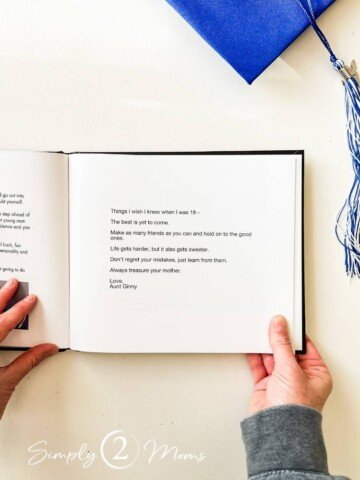 l go out into
ubt yourself.
step ahead of
n young man
idence and you
l back, lips
personality and
e going to do
Things I wish I knew when I was 18 -
The best is yet to come.
Make as many friends as you can and hold on to the good
ones.
Life gets harder, but it also gets sweeter.
Don't regret your mistakes, just learn from them.
Always treasure your mother.
Love,
Aunt Ginny
Simply 2 Moms